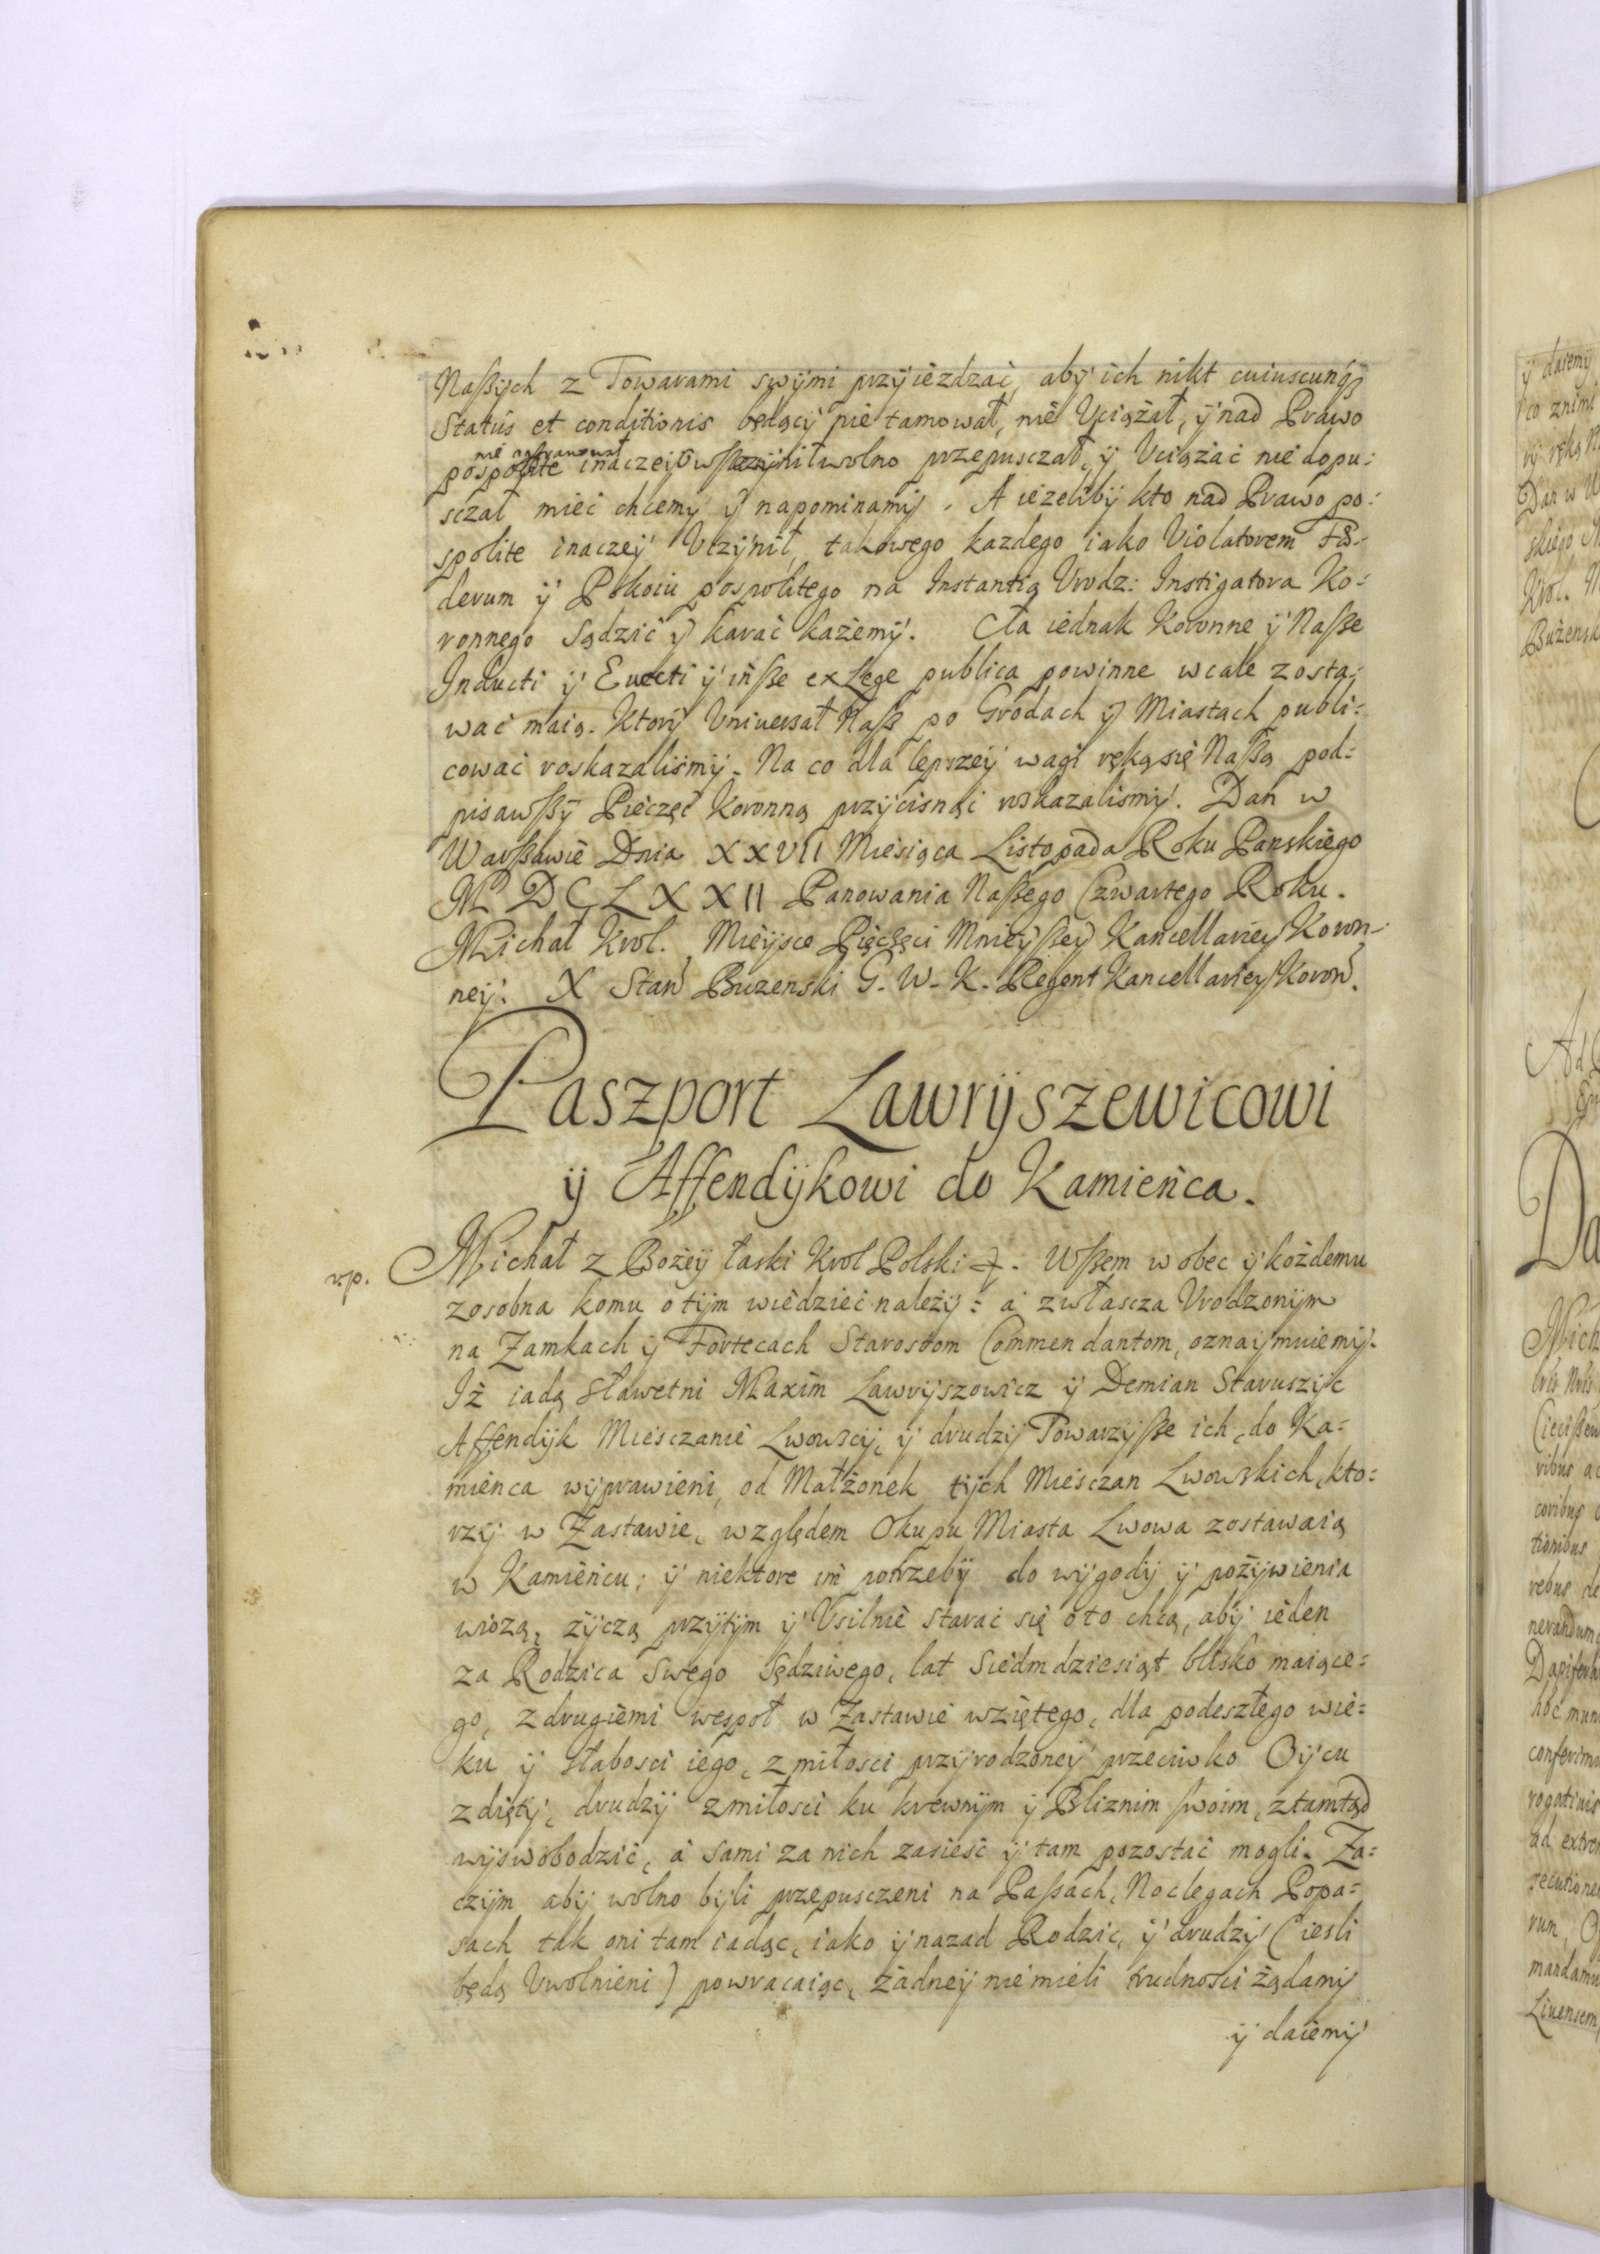 Naßÿch z Towarami swÿmi przÿiezdzaić, abÿ ich nikt cuiuscunqȝ
Status et conditionis będącÿ nie tamował, nie Uciążał, ÿ nad Prawo
nie agrauował
pospolite inaczeÿ wolno przepusczał, ÿ Uciążać nie dopu:
sczał mieć chcemÿ ÿ napominamÿ. A ieżelibÿ kto nad Prawo po:
spolite inaczeÿ Uczÿnił, takowego kazdego iako Violatorem Fœ-
derum ÿ Pokoiu pospolitego na Instantią Urodz: Instigatora Ko-
ronnego Sądzić ÿ karać każemÿ. Cła iednak Koronne ÿ Naße
Inducti ÿ Evecti ÿ inße ex Lege publica powinne wcale zosta-
wać maią. Ktorÿ Uniwersał Naß po Grodach ÿ Miastach publi:
cować roskazaliśmÿ. Na co dla lepszeÿ wagi ręką się Naßą pod-
pisawßÿ Pieczęć Koronną przÿcisnąć roskazaliśmÿ. Dan w
Warßawie Dnia XXVII Miesiąca Listopada Roku Panskiego
MDCLXXII Panowania Naßego Czwartego Roku.
Michał Krol. Mieÿsce Pięczęci Mnieÿßeÿ Kancellarieÿ Koron-
neÿ. X Stan Buzenski G. W. K. Regent Kancellarieÿ Koron.
Paszport Lawrÿszewicowi
ÿ Affendÿkowi do Kamieńca.
rp. Michał z Bożeÿ łaski Krol Polski. Wßem w obec ÿ kożdemu
zosobna komu o tÿm wiedzieć należÿ: a zwłascza Urodzonÿm
na Zamkach ÿ Fortecach Starostom Commendantom, oznaÿmuiemÿ.
Iż iadą Sławetni Maxim Lawrÿszowicz ÿ Demian Staruszÿc
Affendÿk Miesczanie Lwowscÿ, ÿ drudzÿ Towarzÿße ich, do Ka=
mienca wÿprawieni, od Małżonek tÿch Miesczan Lwowskich, kto:
rzÿ w Zastawie, względem Okupu Miasta Lwowa zostawaią
w Kamieńcu; ÿ niektore im potrzebÿ do wÿgodÿ ÿ pożÿwienia
wiozą, żÿczą przÿtÿm ÿ Usilnie starać się o to chcą, abÿ ieden
za Rodzica swego Sędziwego, lat Siedmdziesiąt blisko maiące=
go, z drugiemi wespoł w Zastawie wziętego, dla podeszłego wie=
ku ÿ słabosci iego, z miłosci przÿrodzoneÿ przeciwko Oÿcu
zdiętÿ, drudzÿ z miłosci ku krewnÿm ÿ Bliznim swoim, ztamtąd
wÿswobodzić, a sami za nich zasieść ÿ tam pozostać mogli. Za=
czÿm abÿ wolno bÿli przepusczeni na Paßach, Noclegach Popa=
sach tak oni tam iadąc, iako ÿ nazad Rodzic, ÿ drudzÿ (iesli
będą Uwolnieni) powracaiąc, żadneÿ nie mieli trudnosci żądamÿ
ÿ daiemÿ